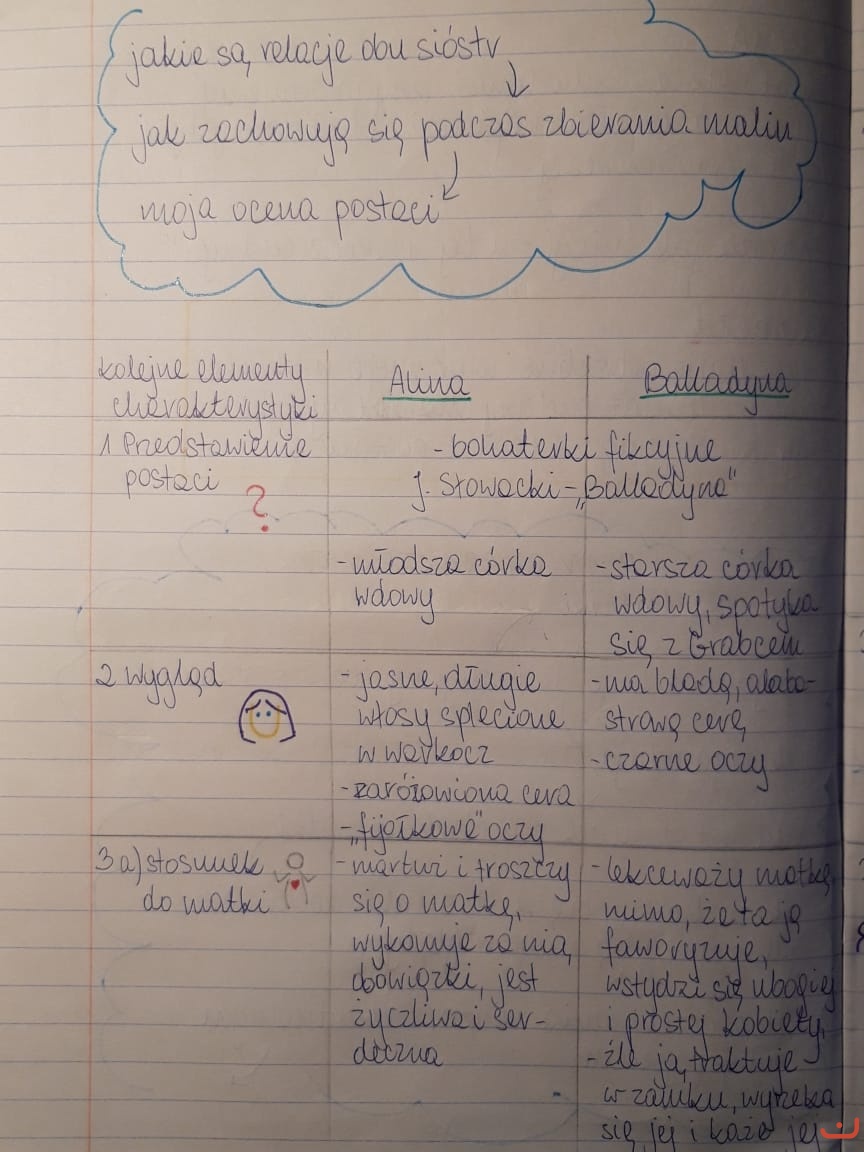 jakie są relacje obu sióstr
jak zachowują się podczas zbierania malin
moja ocena postaci
kolejne elementy charakterystyki
Alina
Balladyna
1 Przedstawienie
postaci
?
- bohaterki fikcyjne
J. Słowacki - „Balladyna"
- młodsza córka
wdowy
- starsza córka
wdowy, spotyka
się z Grabcem
2 wygląd
- jasne, długie
włosy splecione
w warkocz
- zaróżowiona cera
- „fijołkowe" oczy
- ma bladą, alaba-
strową cerę
- czarne oczy
3 a) stosunek
do matki
- martwi i troszczy
się o matkę,
wykonuje za nią
obowiązki, jest
życzliwa i ser-
deczna
- lekceważy matkę,
mimo, że ta ją
faworyzuje,
wstydzi się ubogiej
i prostej kobiety
- źle ją traktuje
w zamku, wyrzeka
się jej i każe jej